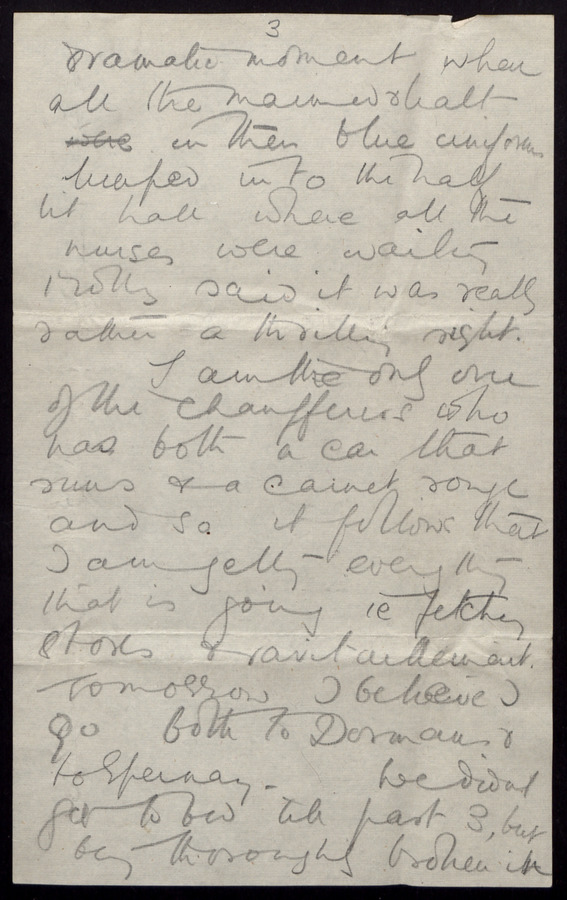 3
dramatic moment when
all the maimed & halt
were in their blue uniforms
limped in to the half
lit hall where all the
nurses were waiting
said it was really
rather a thrilling sight.
I am the only one
of the chauffeurs who
has both a car that
runs & a carnet rouge
and so it follows that
I am getting everything
that is going ie fetching
stores & ravitaillement.
Tomorrow I believe I
go both to Dormans &
to Epernay - We didnt
get to bed till past 3, but
being thoroughly broken in